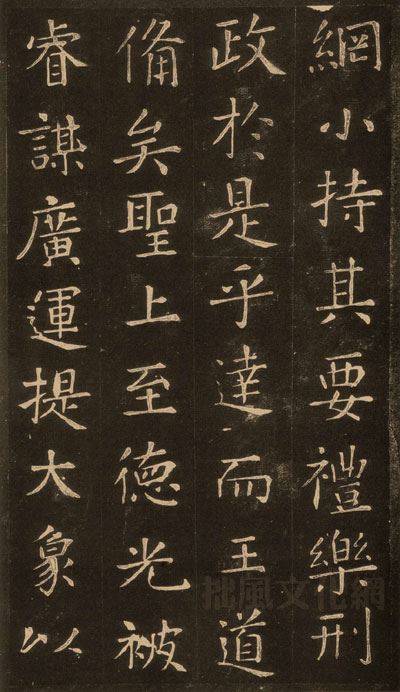 網小持其要禮樂刑
政於是乎達而王道
備矣聖上至德光被
睿謀廣運提大象以
拙風文化網